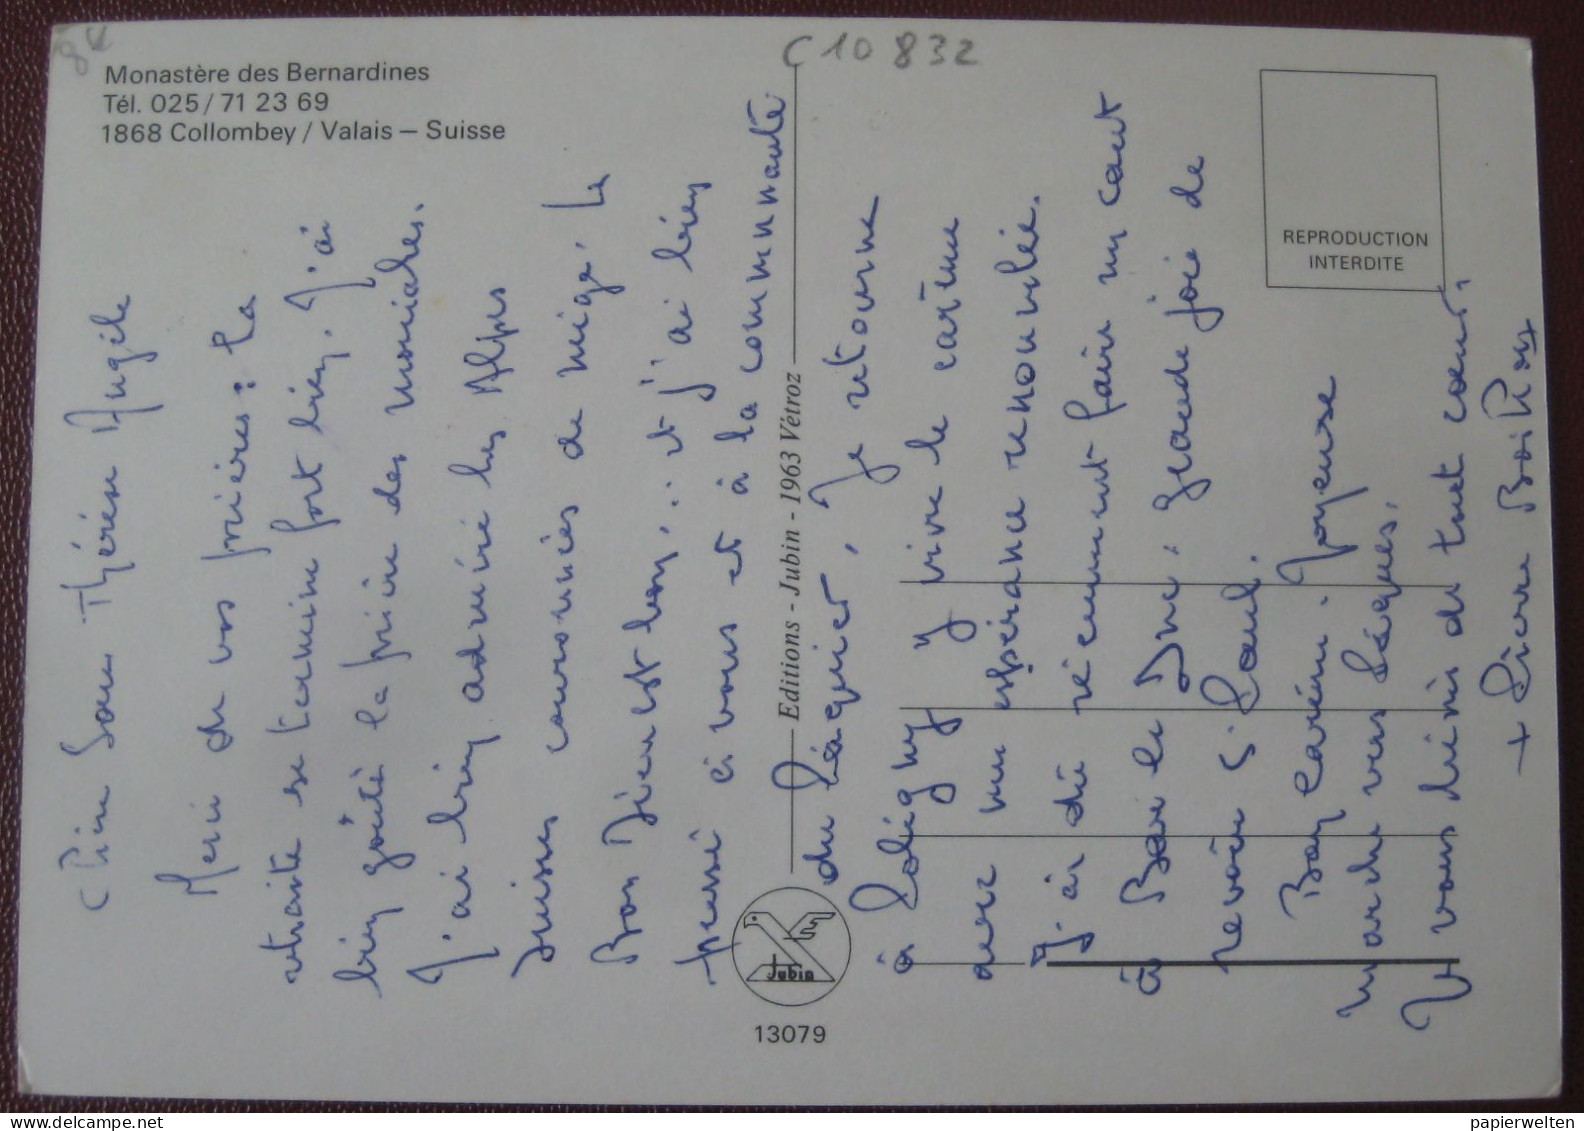 C10832
Monastère des Bernardines
Tél. 025/71 23 69
1868 Collombey / Valais – Suisse
REPRODUCTION
INTERDITE
Editions - Jubin - 1963 Vétroz
Jubin
13079
Chère Sœur Thérèse Angèle
Merci de vos prières : la
retraite se termine fort bien. J'ai
bien goûté la prière des moniales.
J'ai bien admiré les Alpes
suisses couronnées de neige. Le
Bon Dieu est bon... et j'ai bien
pensé à vous et à la communauté
du Léquier. Je retourne
à Poligny y vivre le carême
avec une espérance renouvelée.
J'ai dû récemment faire un saut
à Bar le Duc : grande joie de
revoir S. Paul.
Bon carême. Joyeuse
marche vers Pâques.
Je vous bénis de tout cœur.
+ Pierre
papierwelten